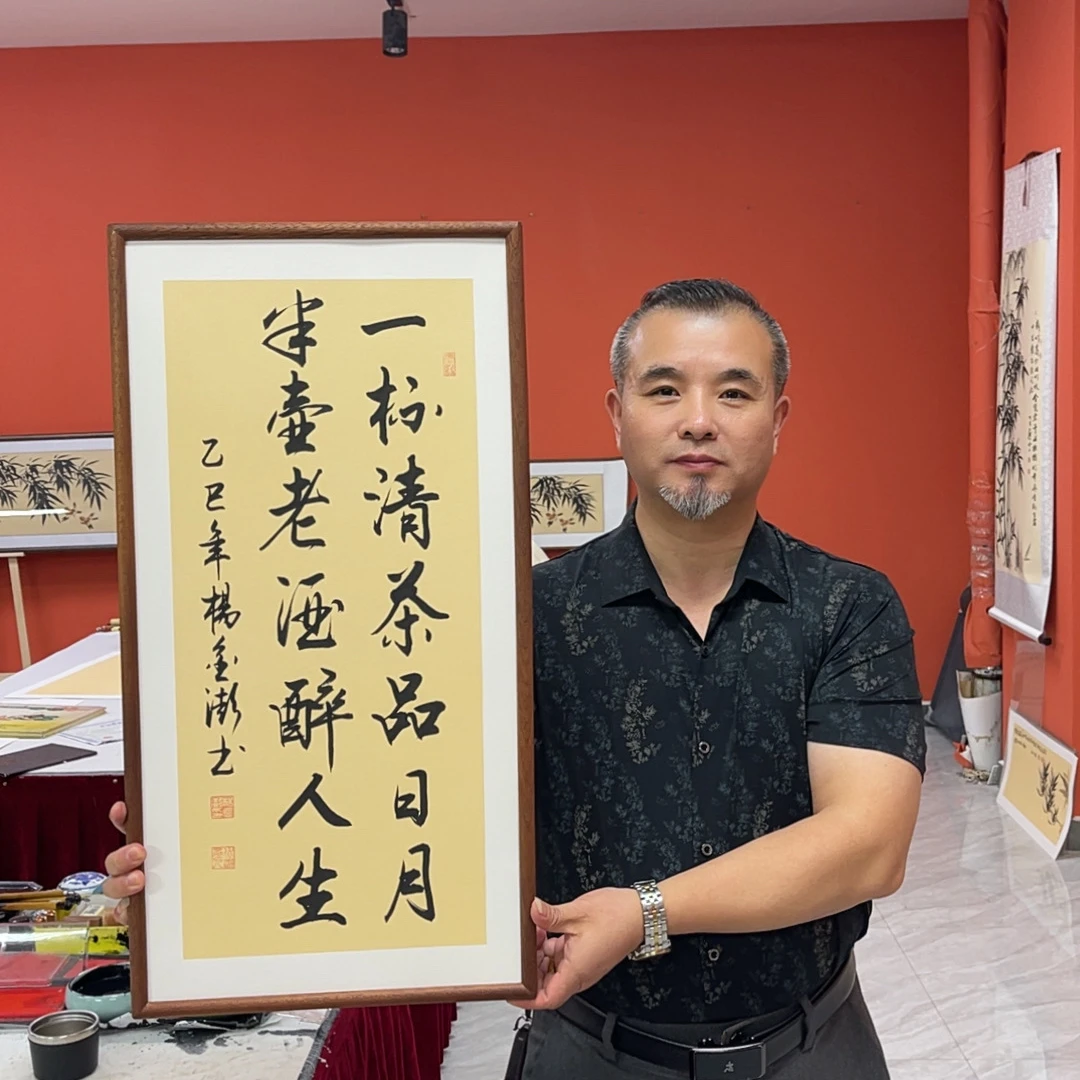 一杯清茶品日月
半壶老酒醉人生
乙巳年杨金澍书